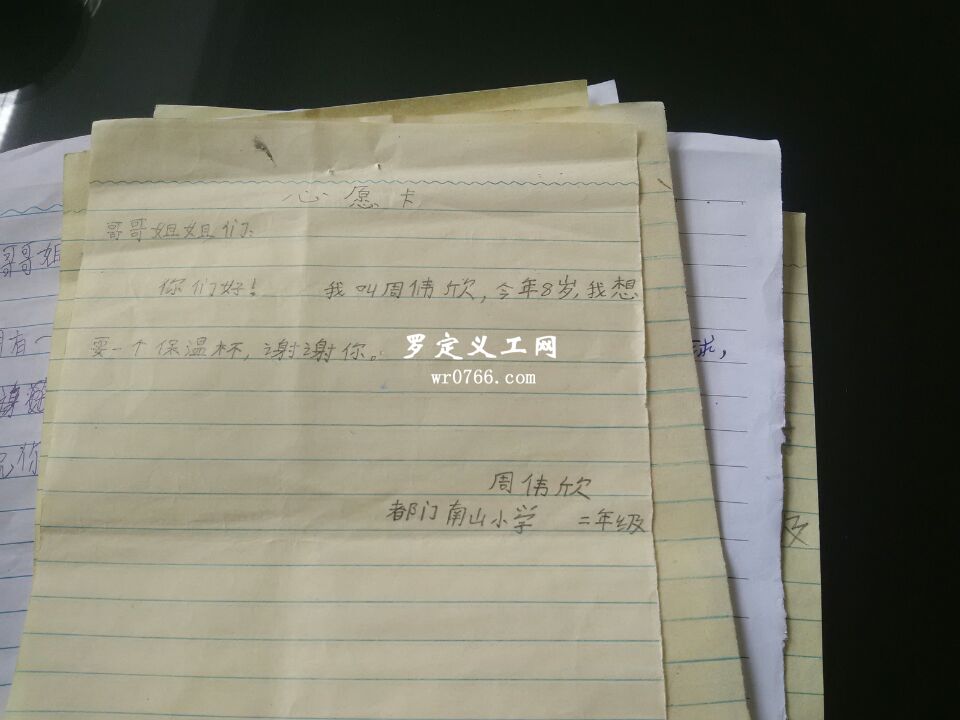 心愿卡
哥哥姐姐们:
你们好! 我叫周伟欣,今年8岁,我想
要一个保温杯,谢谢你。
罗定义工网
wr0766.com
周伟欣
都门南山小学 二年级
哥哥姐
有一
求,